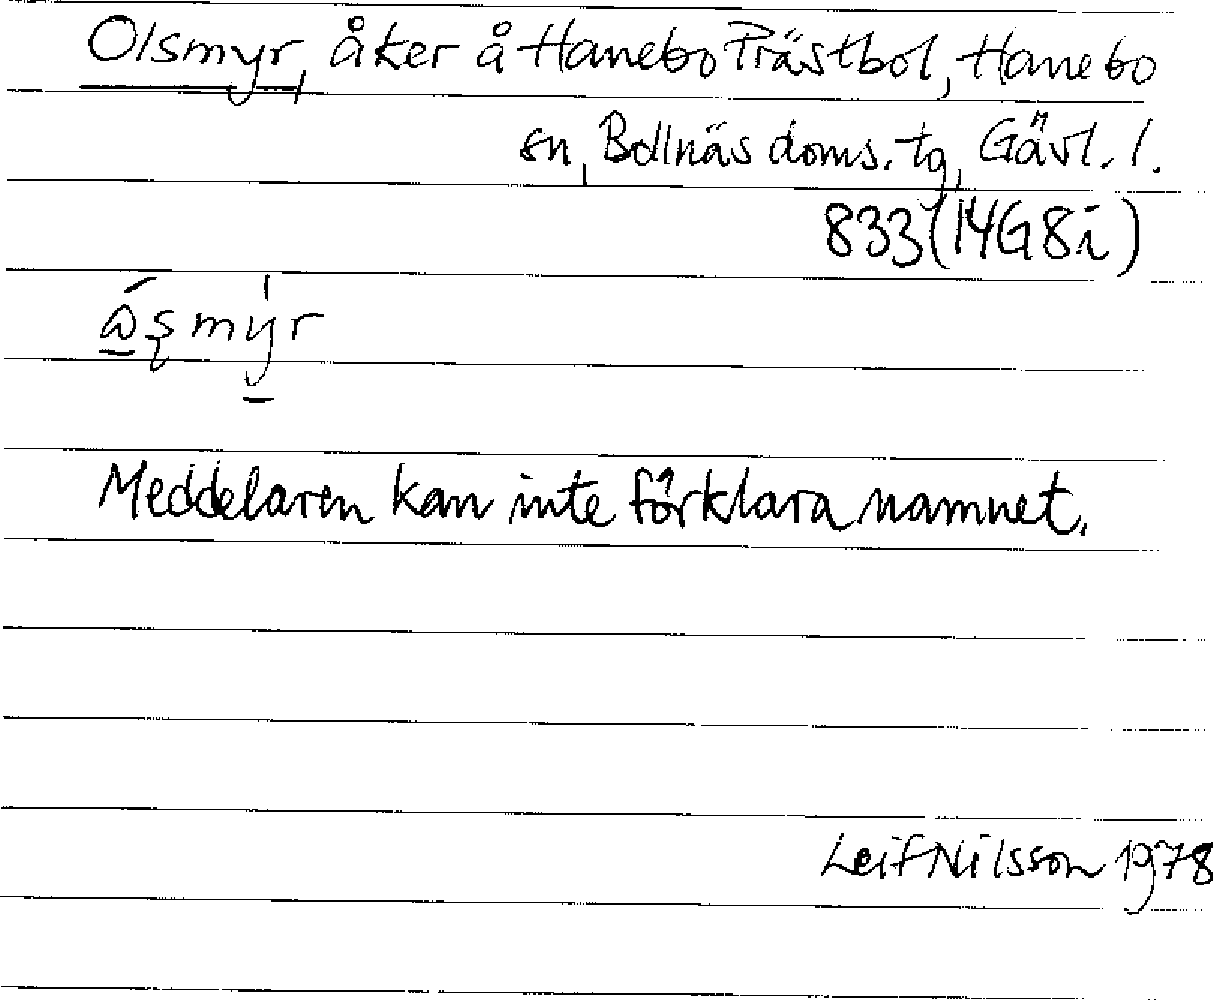 Olsmyr, åker å Hanebo Prästbol, Hanebo
sn, Bollnäs doms. tg, Gävl. l.
833 (14G8i)
Meddelaren kan inte förklara namnet.
Leif Nilsson 1978